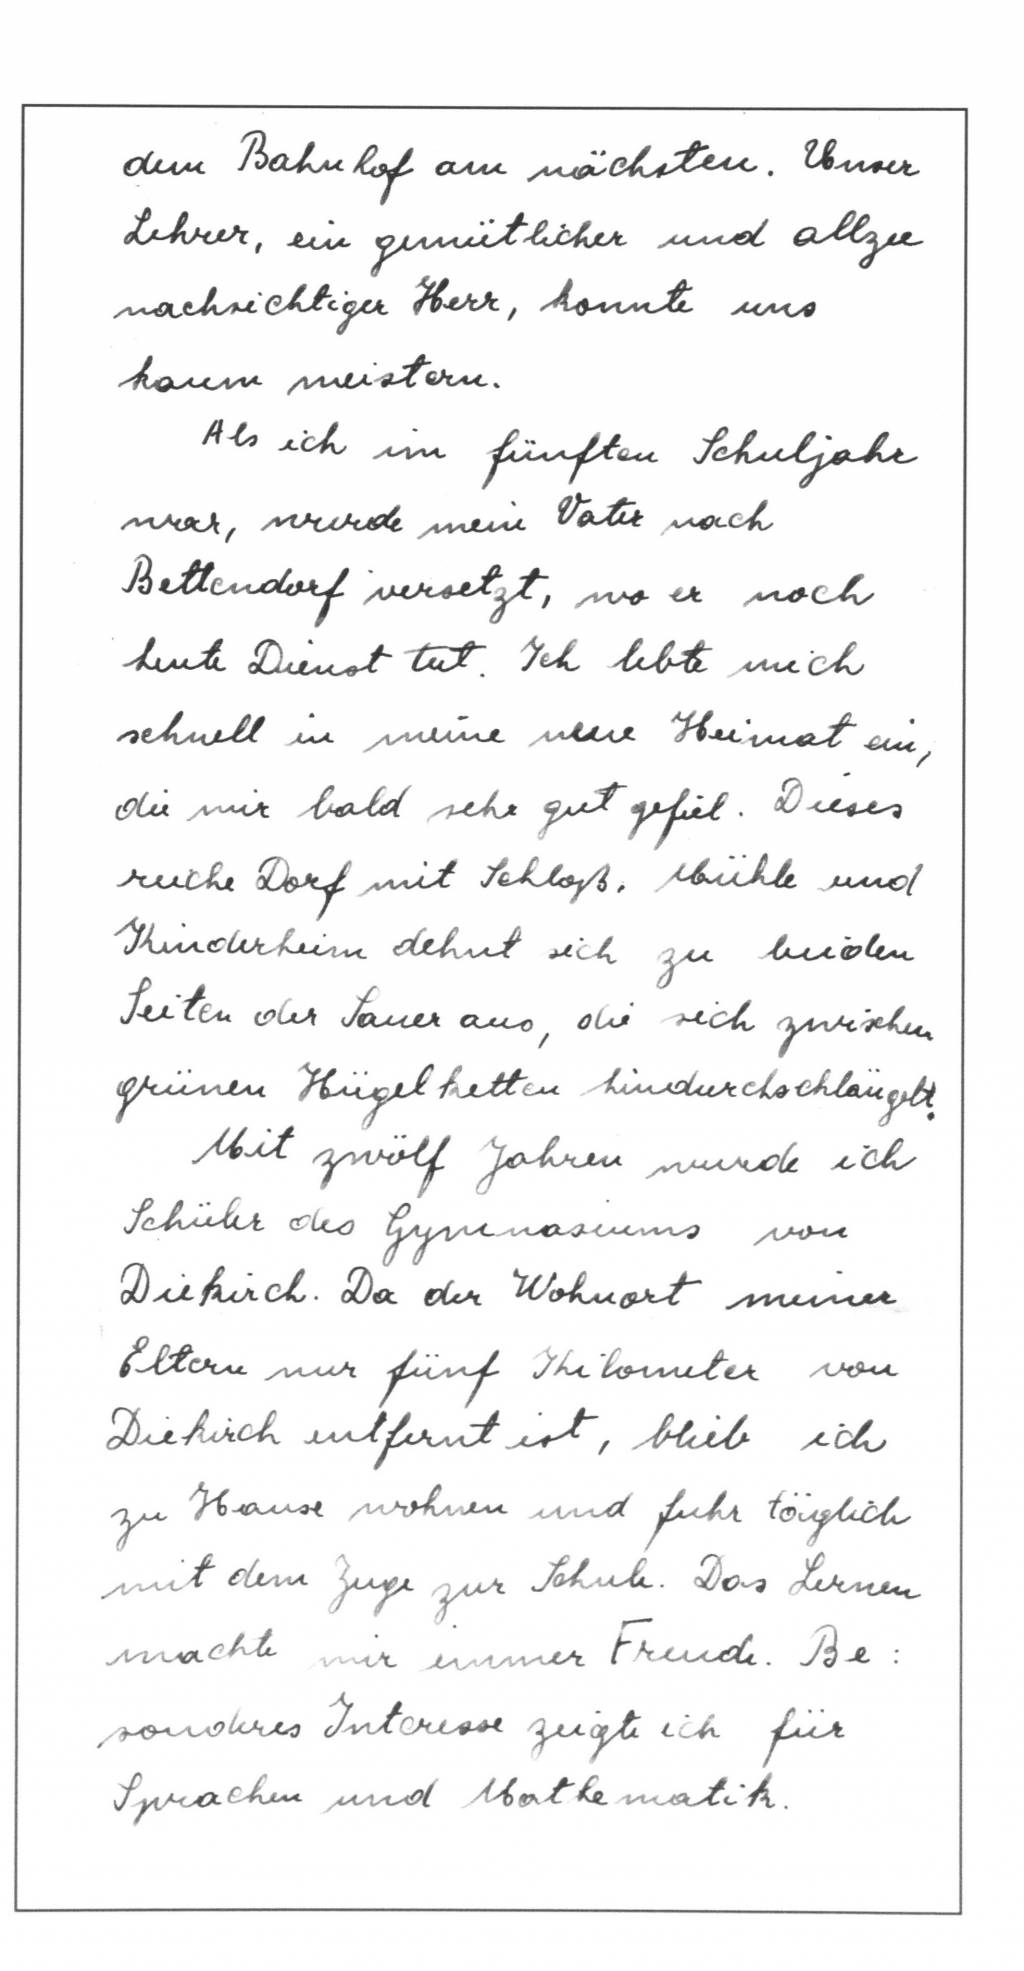 dem Bahnhof am nächsten. Unser
Lehrer, ein gemütlicher und allzu
nachsichtiger Herr, konnte uns
kaum meistern.
Als ich im fünften Schuljahr
war, wurde mein Vater nach
Bettendorf versetzt, wo er noch
heute Dienst tut. Ich lebte mich
schnell in meine neue Heimat ein,
die mir bald sehr gut gefiel. Dieses
reiche Dorf mit Schloß, Mühle und
Kinderheim dehnt sich zu beiden
Seiten der Sauer aus, die sich zwischen
grünen Hügelketten hindurchschlängelt.
Mit zwölf Jahren wurde ich
Schüler des Gymnasiums von
Diekirch. Da der Wohnort meiner
Eltern nur fünf Kilometer von
Diekirch entfernt ist, blieb ich
zu Hause wohnen und fuhr täglich
mit dem Zuge zur Schule. Das Lernen
machte mir immer Freude. Be:
sonderes Interesse zeigte ich für
Sprachen und Mathematik.